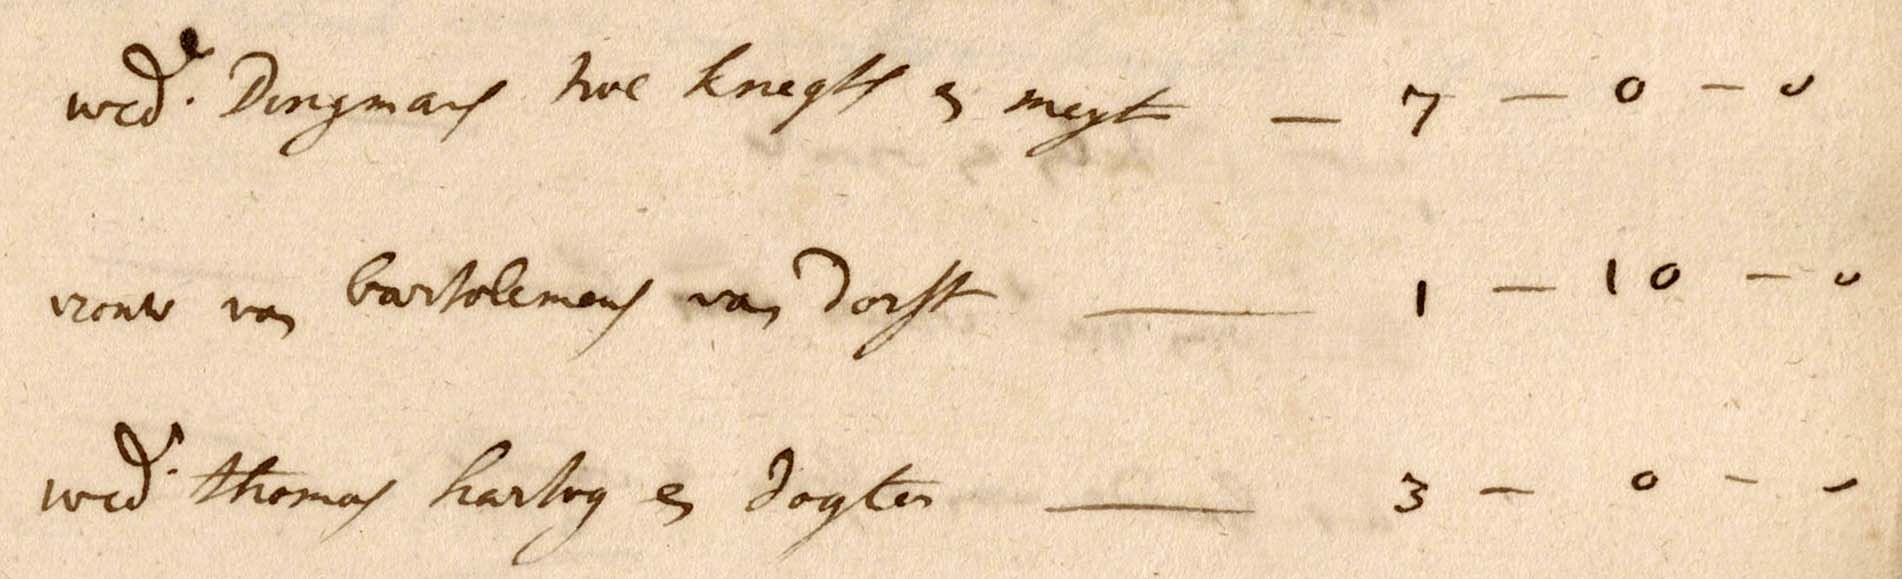 wed.e Dingmans twe knegts en meyt — 7 — 0 — 0
vrouw van bartolemeus van Dorst — 1 — 10 — 0
wed.e thomas hartog en dogter — 3 — 0 — -